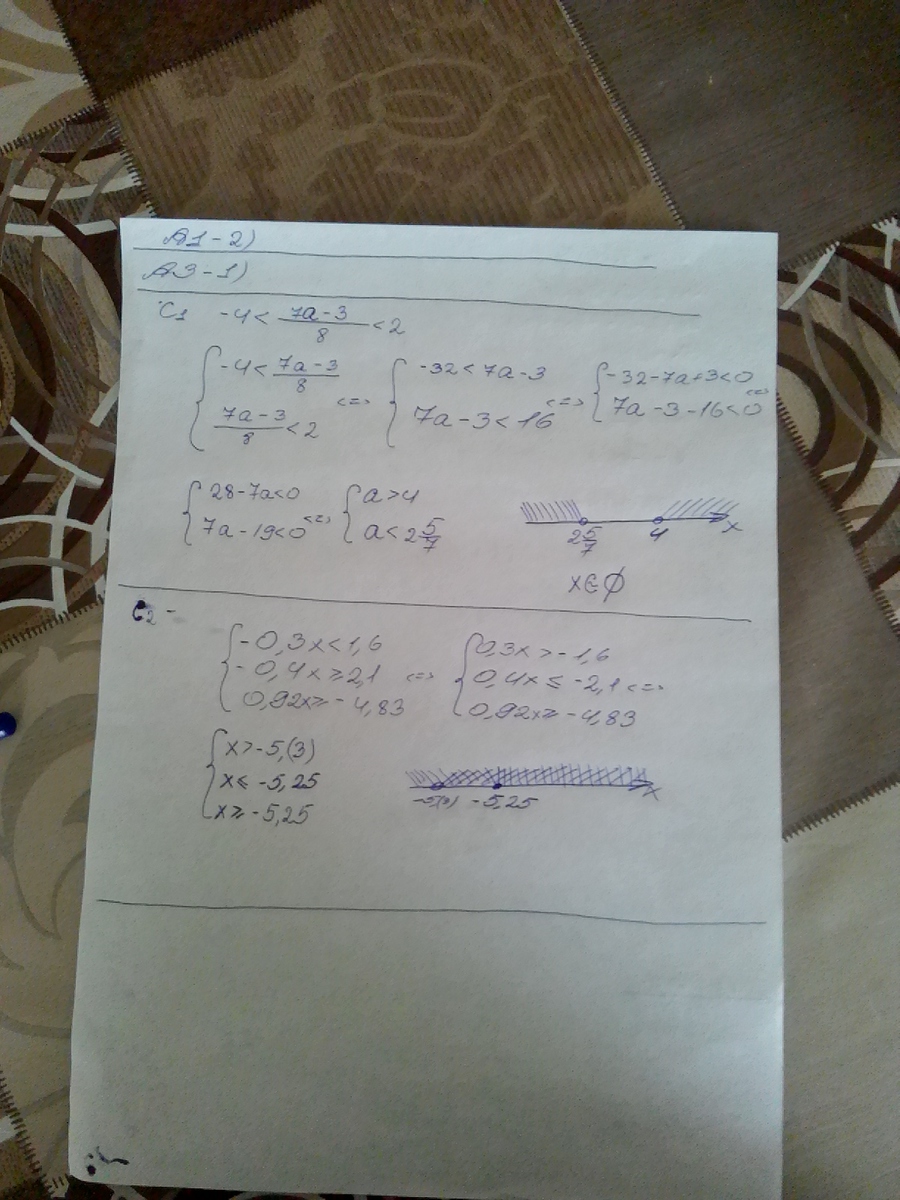 A1-2)
A3-1)
C1 -4 < (7a-3)/8 < 2
{ -4 < (7a-3)/8 ; (7a-3)/8 < 2 <=> { -32 < 7a-3 ; 7a-3 < 16 <=> { -32-7a+3<0 ; 7a-3-16<0 <=>
{ 28-7a<0 ; 7a-19<0 <=> { a>4 ; a<2 5/7
2 5/7 4 x
x∈∅
C2 -
{ -0,3x<1,6 ; -0,4x≥2,1 ; 0,92x≥-4,83 <=> { 0,3x>-1,6 ; 0,4x≤-2,1 ; 0,92x≥-4,83 <=>
{ x>-5,(3) ; x≤-5,25 ; x≥-5,25
-5,(3) -5,25 x